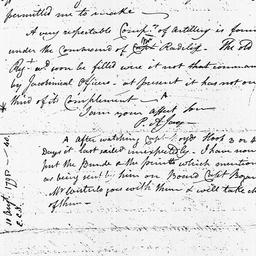 permitted me to make —
A very respectable Comp.y of artillery is found
under the Command of Capt Radclif. The old
Reg.t would soon be filled were it not that comman
by Jacobinical officers. at present it has not on
third of its Complement —
I am your affect. Son
P. A. Jay
A after watching Capt Hoot 3 or 4
Days at last sailed unexpectedly. I have now
put the Bundle & the prints which mention
as being sent by him on Board Capt Bogar
Mr goes with them & will take ch
of them —
11 Augt 1798 —